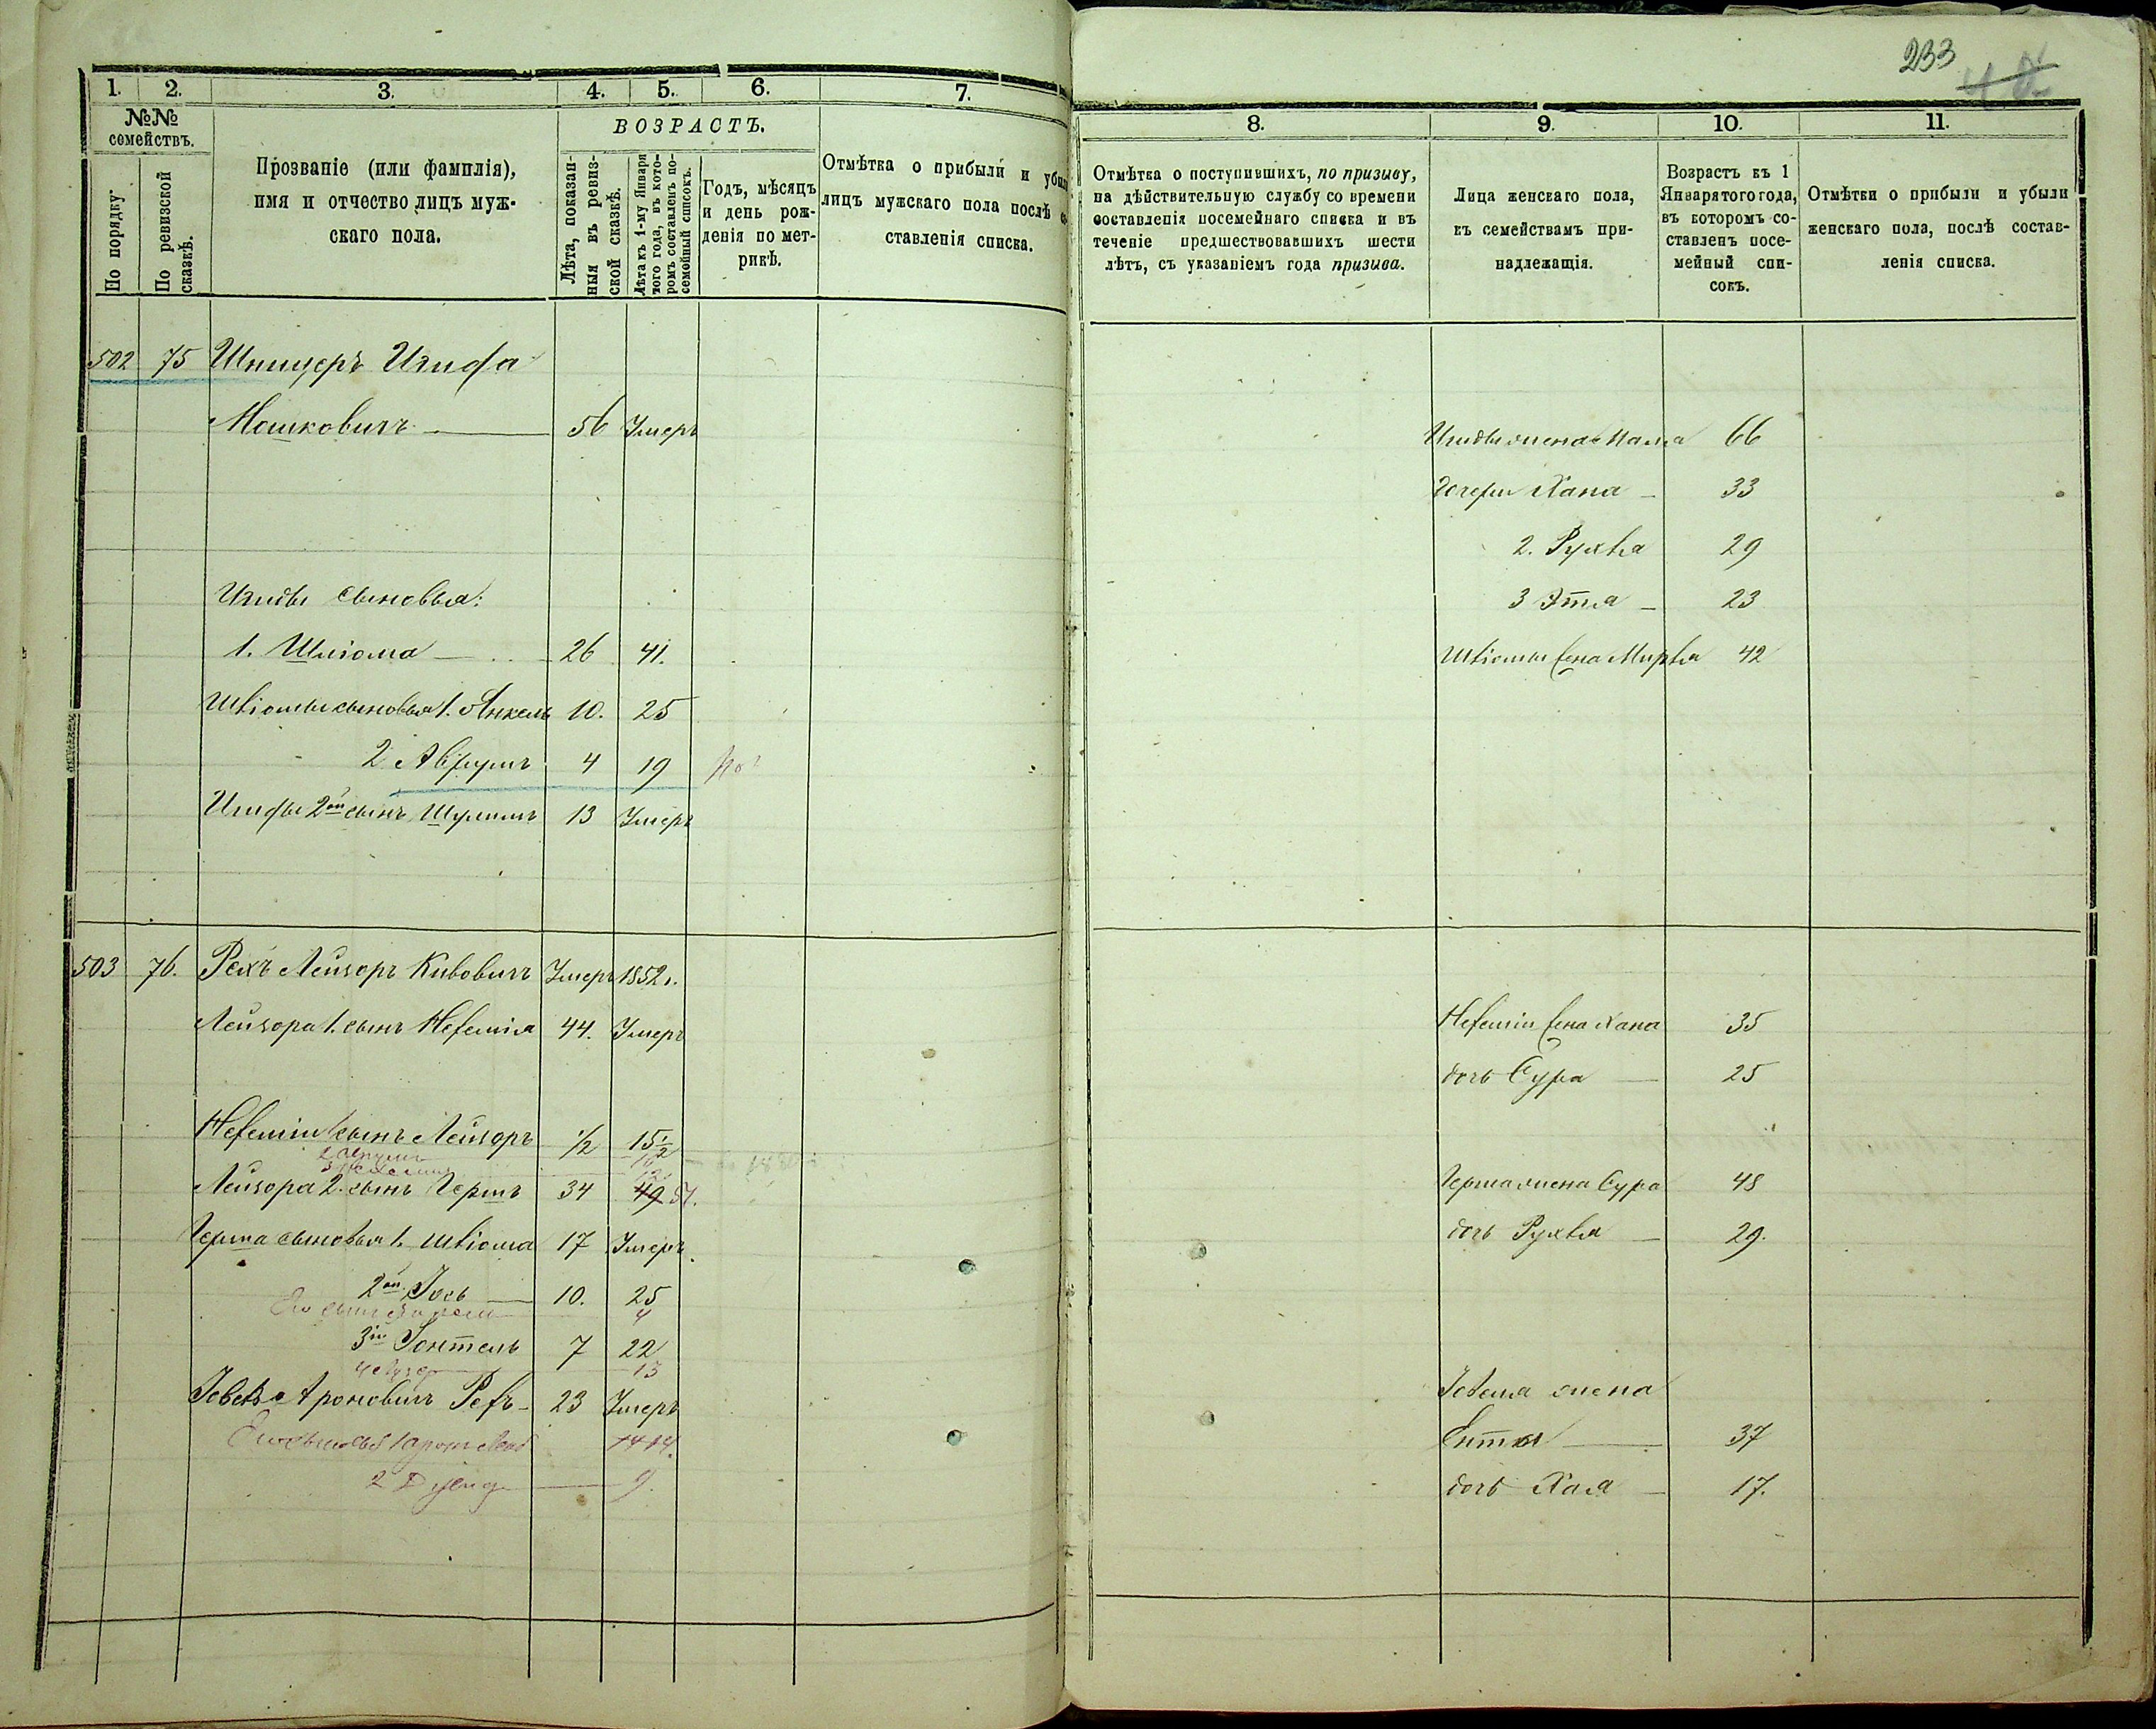 233
1. 2. 3. 4. 5. 6. 7.
№№ семействъ.
По порядку.
По ревизской сказкѣ.
Прозваніе (или фамилія),
имя и отчество лицъ муж-
скаго пола.
ВОЗРАСТЪ.
Лѣта, показан-
ныя въ ревиз-
ской сказкѣ.
Лѣта къ 1-му Января
того года, въ кото-
ромъ составленъ по-
семейный списокъ.
Годъ, мѣсяцъ
и день рож-
денія по мет-
рикѣ.
Отмѣтка о прибыли и убыли
лицъ мужскаго пола послѣ со-
ставленія списка.
502 75 Шпицеръ
Мошковичъ 56 Умеръ
сыновья:
1. Шліома 26 41.
Шліомы сыновья 1. Янкель 10. 25
2 Аврумъ 4 19
2ой сынъ Шулимъ 13 Умеръ
503 76. Рехъ Лейзоръ Кивовичъ Умеръ 1852 г.
Лейзора 1. сынъ Нехемія 44. Умеръ
Нехеміи сынъ Лейзоръ 1/2 15 1/2
2 Аврумъ
Лейзора 2. сынъ Гершъ 34 49 51.
Герша сыновья 1. Шліома 17 Умеръ
2ой Іось 10. 25
Его сынъ 4
3ій Іонтель 7 22
13
Ароновичъ 23 Умеръ
Его сыновья 1 14
2 9.
8. 9. 10. 11.
Отмѣтка о поступившихъ, по призыву,
на дѣйствительную службу со времени
составленія посемейнаго списка и въ
теченіе предшествовавшихъ шести
лѣтъ, съ указаніемъ года призыва.
Лица женскаго пола,
къ семействамъ при-
надлежащія.
Возрастъ къ 1
Января того года,
въ которомъ со-
ставленъ посе-
мейный спи-
сокъ.
Отмѣтки о прибыли и убыли
женскаго пола, послѣ состав-
ленія списка.
жена 66
дочери Хана 33
2. Рухля 29
3 Этля 23
Шліомы жена Мирля 42
Нехеміи жена Хана 35
дочь Сура 25
Герша жена Сура 48
дочь Рухля 29.
жена
37
дочь Хая 17.